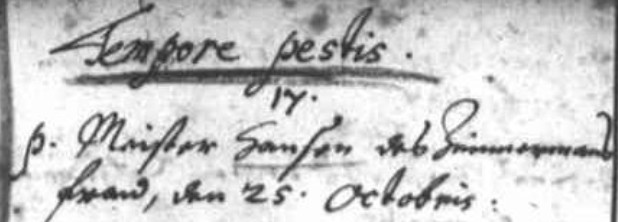 Tempore pestis.
17.
p. Maister Hansen des Zimmermans
fraw, den 25. Octobris.